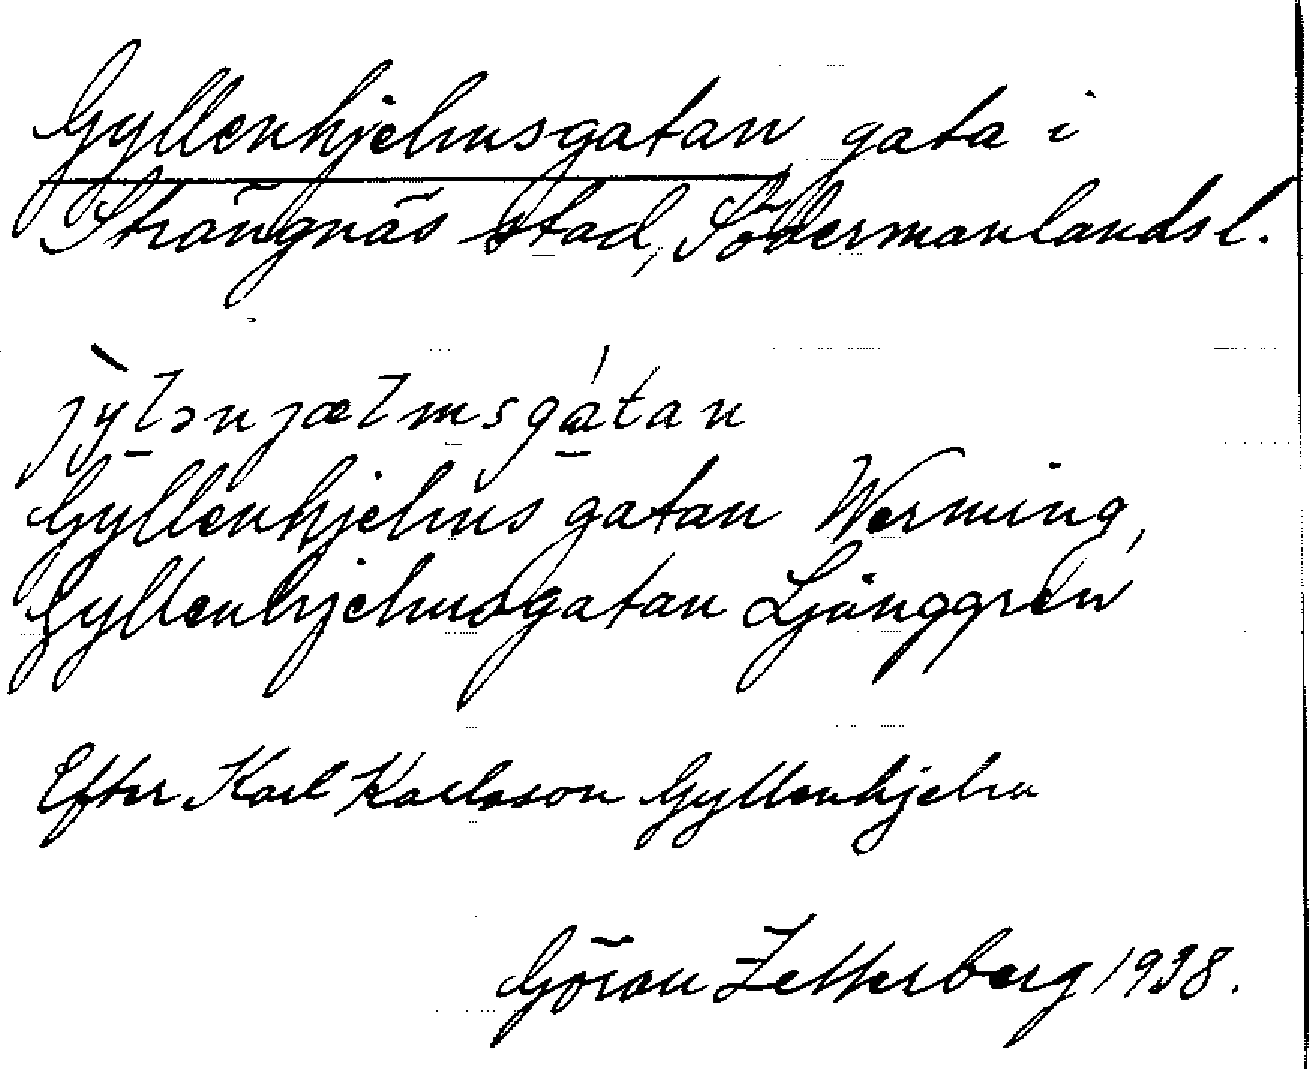 Gyllenhjelmsgatan gata i
Strängnäs stad, Södermanlands l.
jỳlənjælmsgátan
Gyllenhjelms gatan Werming,
Gyllenhjelmsgatan Ljunggren
Efter Karl Karlsson Gyllenhjelm
Göran Zetterberg 1938.